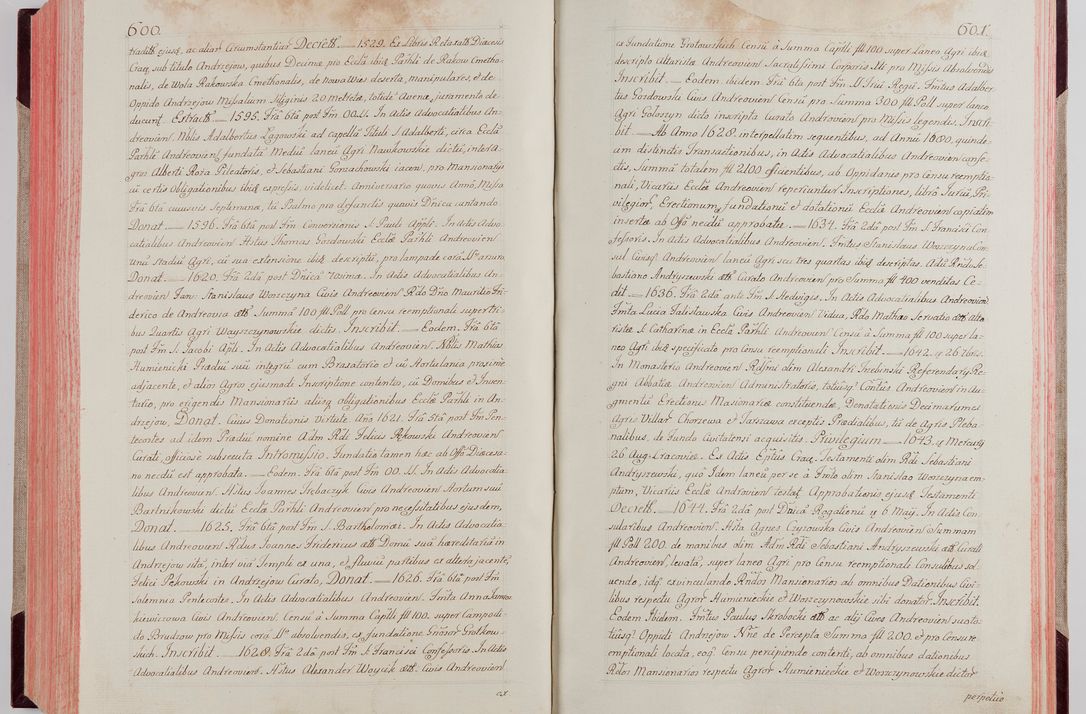 600.
traditô ejusq, ac aliar Circumstantiar Decrett. — 1529. Ex Libris Retaxatô Diæcesis
Crac, sub titulo Andrzejow, quibus Decimæ pro Ecclâ ibiq Parhli de Rakow Cmetho-
nalis, de Wola Rakowska Cmethonalis, de Nowa Wies deserta, manipulares, & de
Oppido Andrzejow Missalium Siliginis 20 metretæ, totidê Avenæ, juramento de-
ducunt. Extractt. — 1595. Frâ 6tâ post Fm OO.SS. In Actis Advocatialibus An-
dreovien. Nblis Adalbertus Łagowski ad capellâ Tituli S. Adalberti, circa Ecclâ
Parhlê Andreovien, fundatâ Mediũ laneũ Agri Nawkowskie dictũ, inter A-
gros Alberti Roza Pileatoris, & Sebastiani Gomachowski iacen, pro Mansionariis
cũ certis obligationibus ibiq expressis, videlicet. Anniversario quovis Annô, Missa
Frâ 6tâ cuiusvis Septimanæ, tũ Psalmo pro defunctis quavis Dñica cantando
Donat. — 1596. Frâ 6tâ post Fm Conversionis S. Pauli Appli. In Actis Advo-
catialibus Andreovien. Hstus Thomas Gozdowski Ecclæ Parhli Andreovien
Unũ Stadiũ Agri, cũ sua extensione ibiq descriptũ, pro lampade corâ Ssmo arsuro,
Donat. — 1620. Frâ 2dâ post Dñicâ 70sima. In Actis Advocatialibus An-
dreovien Fams. Stanislaus Worszczyna Civis Andreovien Rdo Dño Mauritio Fri-
derico de Andreovia att Summâ 100 fll Poll pro Censu reemptionali super tri-
bus Quartis Agri Wayszczynowskie dictis. Inscribit. — Eodem. Frâ 6tâ
post Fm S. Jacobi Apli. In Actis Advocatialibus Andreovien. Nblis Mathias
Humienicki Prædiũ suũ integrũ cum Brasatorio & cũ Hortulania proxime
adjacente, & aliis Agris ejusmodi Inscriptione contentis, cũ Domibus & Inven-
tario, pro erigendis Mansionariis aliisq obligationibus Ecclæ Parhli in An-
drzejow, Donat. Cuius Donationis virtute. Año 1621. Frâ 5tâ post Fm Pen-
tecostes ad idem Prædiũ nomine Adm. Rdi Felicis Pękowski Andreovien
Curati, officiosè subsecuta Intromissio. Fundatio tamen hæc ab Offô Diæcesa-
no necdũ est approbata. — Eodem. Frâ 6tâ post Fm OO.SS. In Actis Advocatia-
libus Andreovien. Hstus Joannes Trębaczyk Civis Andreovien Hortum suũ
Bartnikowski dictũ Ecclæ Parhli Andreovien pro necessitatibus ejusdem,
Donat. — 1625. Frâ 6tâ post Fm S. Bartholomæi. In Actis Advocatia-
libus Andreovien Rdus Joannes Fridericus att Domũ suâ hæreditariâ in
Andrzejow sitâ, inter viâ Templi ex una, & fluvii partibus ex altera jacente,
Felici Pękowski in Andrzejow Curato, Donat. — 1626. Frâ 6tâ post Fm
Solemnia Pentecostes. In Actis Advocatialibus Andreovien. Fmta Anna
kiewiczowa Civis Andreovien. Censũ à Summa Capitli fll 100. super Campo di-
cto Brudzow pro Missis corâ Ssmo absolvendis, ex fundatione Gnosor Grotkow-
skich. Inscribit. — 1628. Frâ 2dâ post Fm S. Francisci Confessoris. In Actis
Advocatialibus Andreovien. Hstus Alexander Woycik att. Civis Andreovien
ex
601.
ex Fundatione Grotowskich Censũ à Summa Capitli fll 100 super Laneo Agri ibiq
descripto Altaristæ Andreovien Sacratissimi Corporis Xti pro Missis Absolvendis
Inscribit. — Eodem. ibidem Frâ 6ta post Fm SS. Triũ Regũ. Fmtus Adalber-
tus Gozdowski Civis Andreovien Censũ pro Summa 300 fll Poll super laneo
Agri Goloszyn dicto inscripta Curato Andreovien pro Missis legendis, Inscri-
bit. — Ab Anno 1628. interpellatim sequentibus, ad Annũ 1680. quinde-
cim distinctis Transactionibus, in Actis Advocatialibus Andreovien confe-
ctis, Summâ totalem fll 2100 efficientibus, ab Oppidanis pro Censu reemptio-
nali, Vicariis Ecclæ Andreovien reperiuntur Inscriptiones, librô Jurium, Pri-
vilegior, Erectionum, fundationũ & dotationũ Ecclæ Andreovien copiatim
insertæ ab Offô necdũ approbatæ. — 1634. Frâ 2dâ post Fm S. Francisci Con-
fessoris. In Actis Advocatialibus Andreovien. Fmtus Stanislaus Worszczyna Con-
sul Civisq Andreovien laneũ Agri, seu tres quartas ibiq descriptas. Adm Rndo Se-
bastiano Andryszewski att Curato Andreovien pro Summa fll 400 venditas Ce-
dit. — 1636. Frâ 2dâ ante Fm S. Hedvigis. In Actis Advocatialibus Andreovien
Fmta Lucia Falislawska Civis Andreovien Vidua, Rdo Mathæo Servatio att Alta-
ristæ S. Catharinæ in Ecclâ Parhli Andreovien Censũ à Summa fll 100 super la-
neo Agri ibiq specificato pro Censu reemptionali Inscribit. — 1642. y 26 7bris.
In Monasterio Andreovien Rdsmi olim Alexandri Trebinski Referendary Re-
gni Abbatiæ Andreovien Administratoris, totiusq Contus Andreovien in Au-
gmentũ Erectionis Masionariæ constituendæ, Donatationis Decimarum ex
Agris Villar Chorzewa & Tarszawa exceptis Prædialibus, tũ de Agris Pleba-
nalibus, de Fundo Civitatensi acquisitis. Privilegium — 1643. y Mercurij
26 Aug. Cracoviæ. Ex Actis Eptũs Crac, Testamenti olim Rdi Sebastiani
Andryszewski, quô Idem laneũ per se à Fmto olim Stanislao Worszczyna em-
ptum, Vicariis Ecclæ Andreovien testat. Approbationis ejusq Testamenti
Decrett. — 1644. Frâ 2dâ post Dnicâ Rogationũ y 6 Maij. In Actis Con-
sularibus Andreovien. Hsta Agnes Cynowska Civis Andreovien Summam
fll Poll 200. de manibus olim Adm Rdi Sebastiani Andryszewski att Curati
Andreovien, levatâ, super laneo Agri pro Censu reemptionali Consulibus sol-
vendo, idq evinculando Rndos Mansionarios ab omnibus Dationibus Civi-
libus respectu Agror Humienieckie & Worszczynowskie sibi donator. Inscribit.
Eodem. Ibidem. Fmtus Paulus Skrobocki att ac alij Cives Andreovien suo to-
tiusq Oppidi Andrzejow Nñe de Percepta Summa fll 200. & pro Censu re-
emptionali locata, eoq Censu percipiendo contenti, ab omnibus dationibus
Rdos Mansionarios respectu Agror Humienieckie & Worszczynowskie dictor
perpetuo